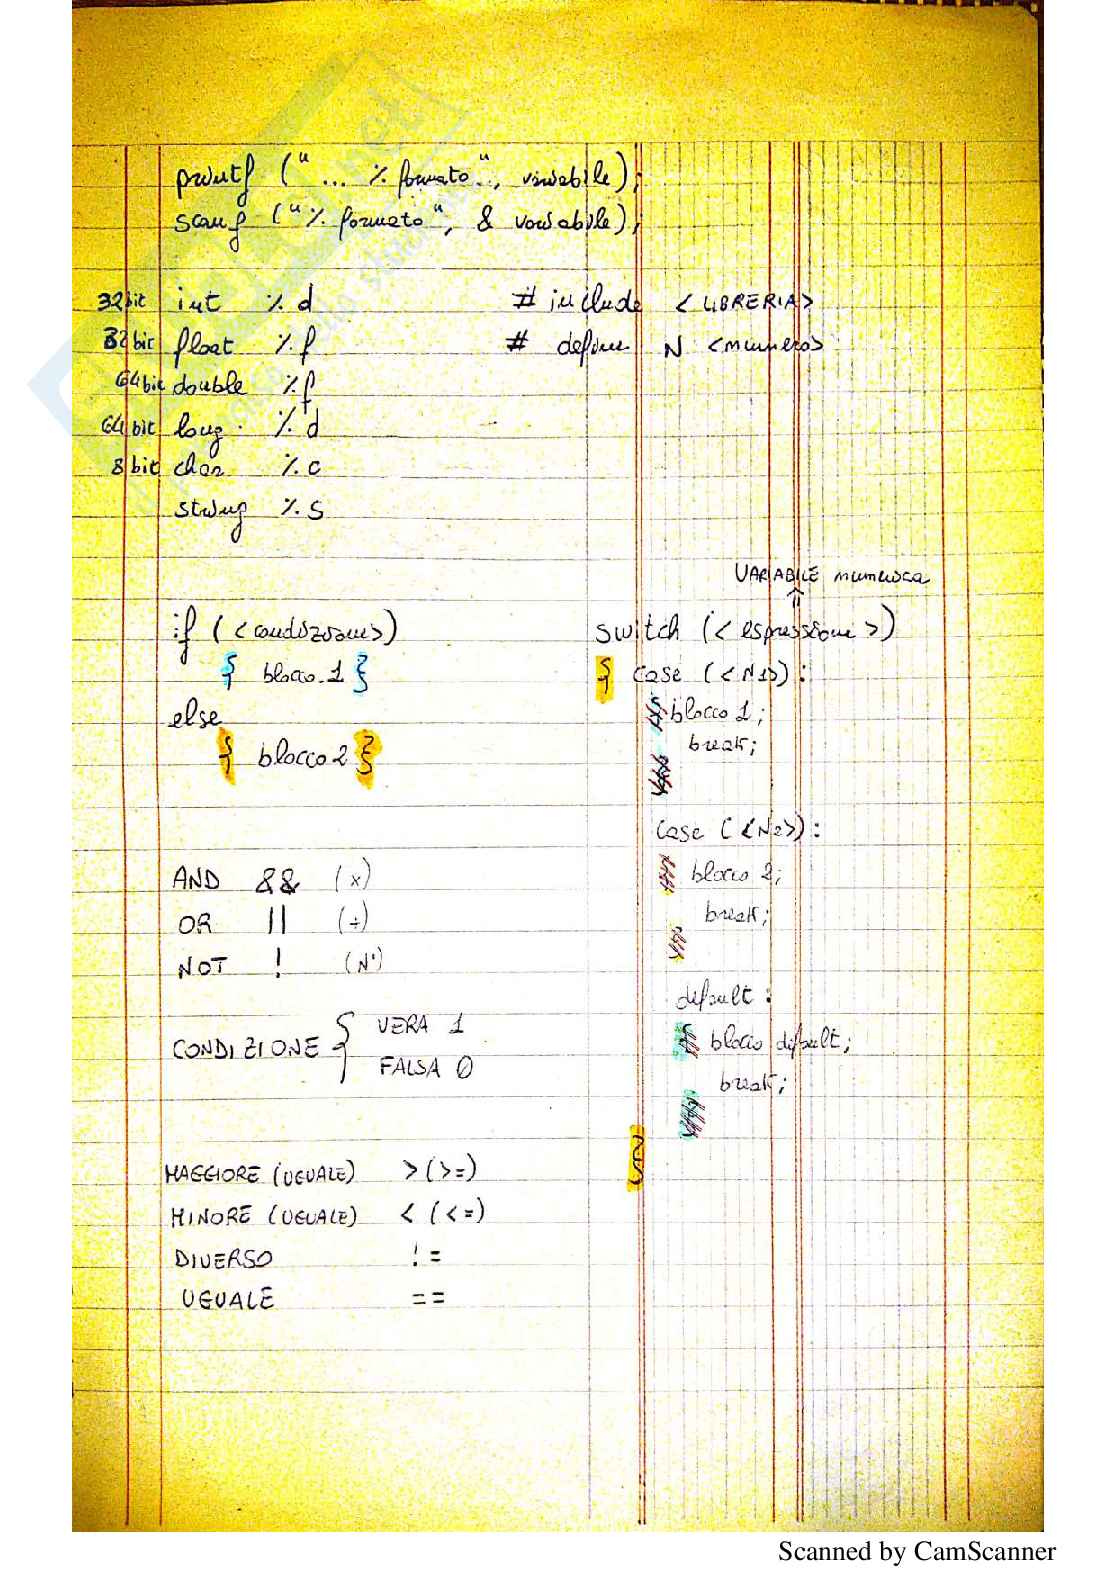 printf ("... % formato", variabile);
scanf ("% formato", & variabile);
32bit int % d
# include < LIBRERIA>
32bit float % f
# define N <numero>
64bit double % f
64bit long % d
8bit char % c
string % s
if (<condizione>)
{ blocco 1 }
else
{ blocco 2 }
VARIABILE numerica
⇑
switch (< espressione >)
{ case (< N1>) :
blocco 1 ;
break;
case (<N2>) :
blocco 2;
break;
default :
blocco default;
break;
}
AND && (x)
OR || (+)
NOT ! (N')
CONDIZIONE { VERA 1
FALSA 0
MAGGIORE (UGUALE) > (>=)
MINORE (UGUALE) < (<=)
DIVERSO !=
UGUALE ==
Scanned by CamScanner